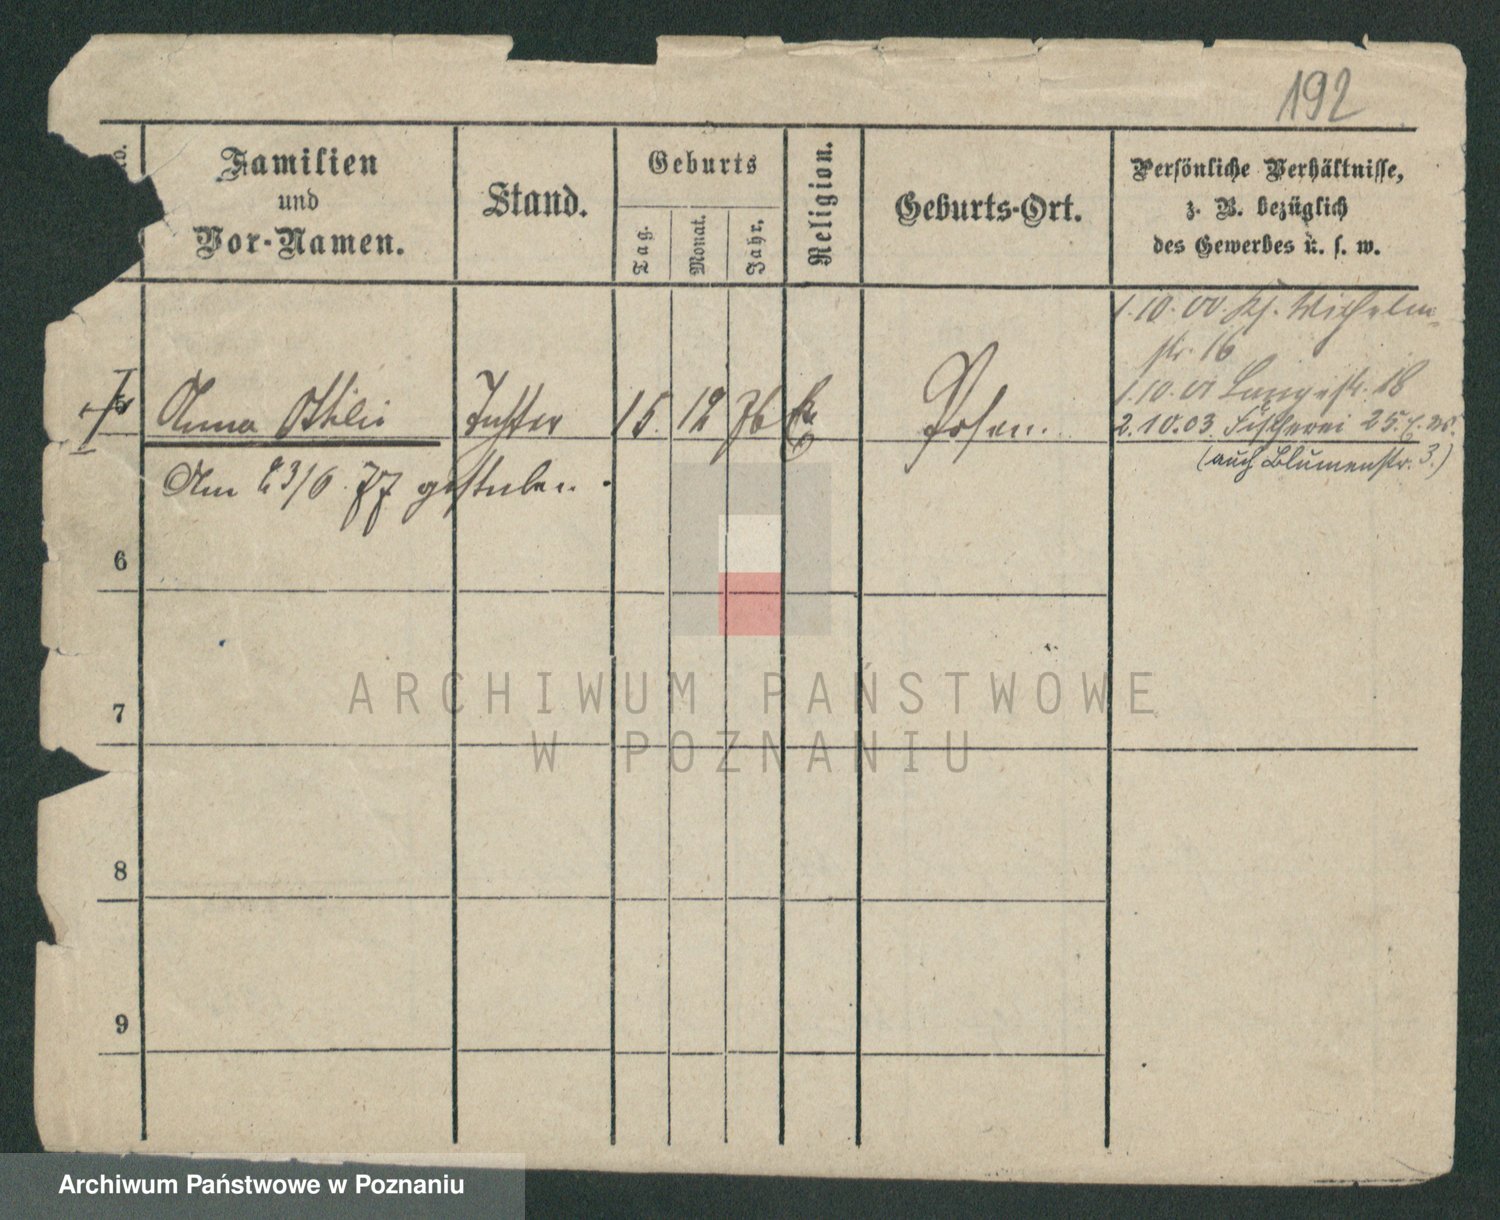 192
No.
Familien
und
Vor-Namen.
Stand.
Geburts
Tag.
Monat.
Jahr.
Religion.
Geburts-Ort.
Persönliche Verhältnisse,
z. B. bezüglich
des Gewerbes u. s. w.
1.10.00. Kl. Wilhelm-
str. 16
1.10.01 Langestr. 18
Anna Ottilie Tochter 15. 12 76 Posen.
2.10.03. Fischerei 25.
(auch Blumenstr. 3.)
Am 23/6. 77 gestorben.
6
7
8
9
ARCHIWUM PAŃSTWOWE
W POZNANIU
Archiwum Państwowe w Poznaniu